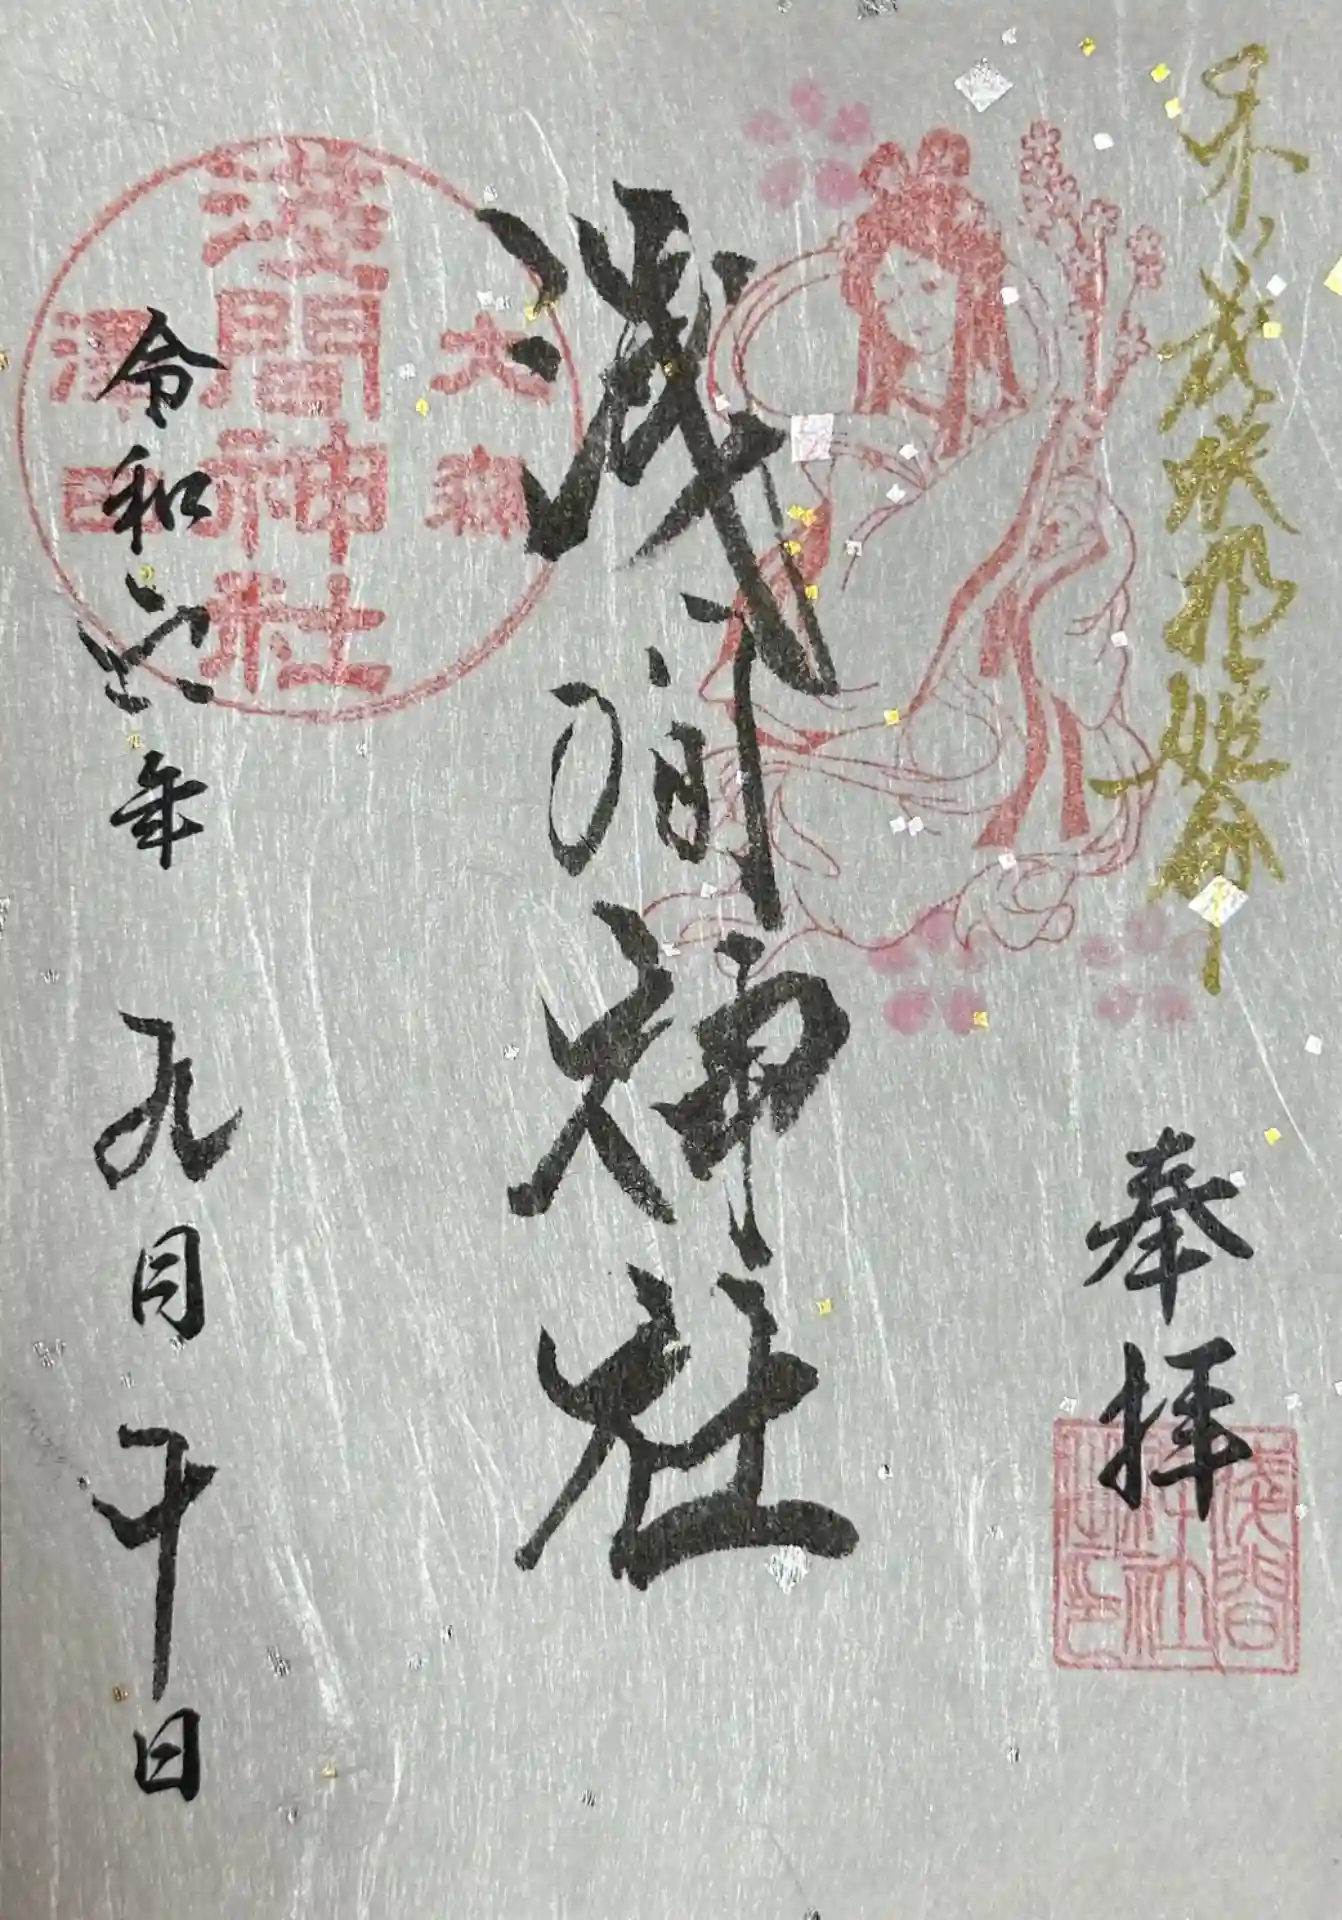 木ノ花咲耶姫命
奉拝
淺間
神社
之印
浅間神社
大森
淺間神社
澤田
令和六年 九月 日